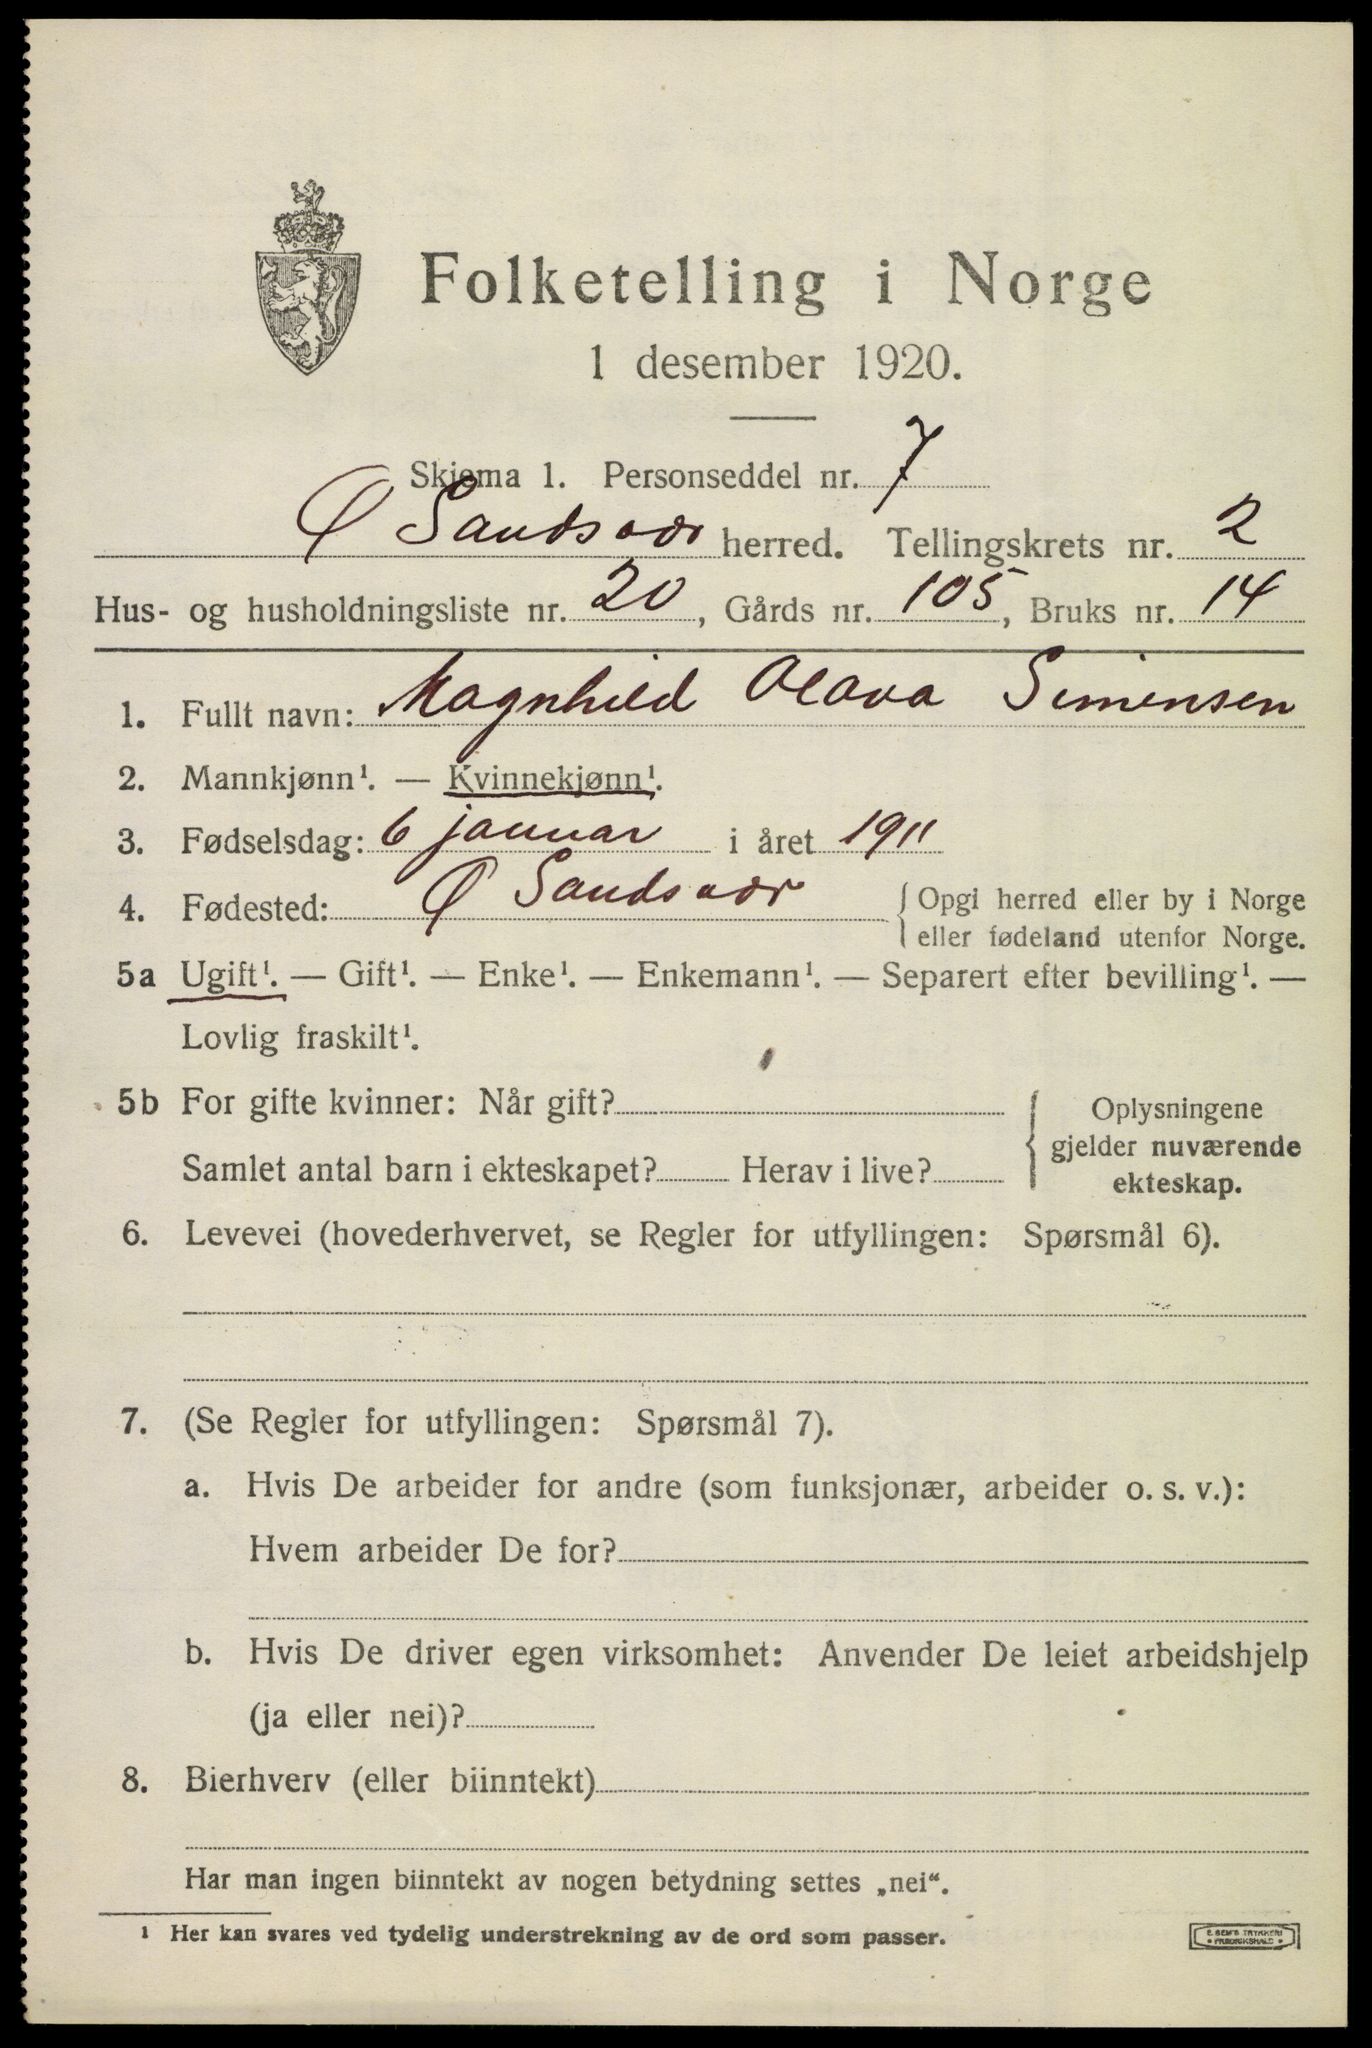 Folketelling i Norge
1 desember 1920.
Skjema 1. Personseddel nr. 7
Ø Sandsvær herred. Tellingskrets nr. 2
Hus- og husholdningsliste nr. 20, Gårds nr. 105, Bruks nr. 14
1. Fullt navn: Magnhild Olava Simensen
2. Mannkjønn¹. — Kvinnekjønn¹.
3. Fødselsdag: 6 januar i året 1911
4. Fødested: Ø Sandsvær { Opgi herred eller by i Norge
eller fødeland utenfor Norge.
5a Ugift¹. — Gift¹. — Enke¹. — Enkemann¹. — Separert efter bevilling¹. —
Lovlig fraskilt¹.
5b For gifte kvinner: Når gift?
Samlet antal barn i ekteskapet? Herav i live?
{ Oplysningene
gjelder nuværende
ekteskap.
6. Levevei (hovederhvervet, se Regler for utfyllingen: Spørsmål 6).
7. (Se Regler for utfyllingen: Spørsmål 7).
a. Hvis De arbeider for andre (som funksjonær, arbeider o. s. v.):
Hvem arbeider De for?
b. Hvis De driver egen virksomhet: Anvender De leiet arbeidshjelp
(ja eller nei)?
8. Bierhverv (eller biinntekt)
Har man ingen biinntekt av nogen betydning settes „nei“.
¹ Her kan svares ved tydelig understrekning av de ord som passer.
E. SEM'S TRYKKERI
• FREDRIKSHALD •